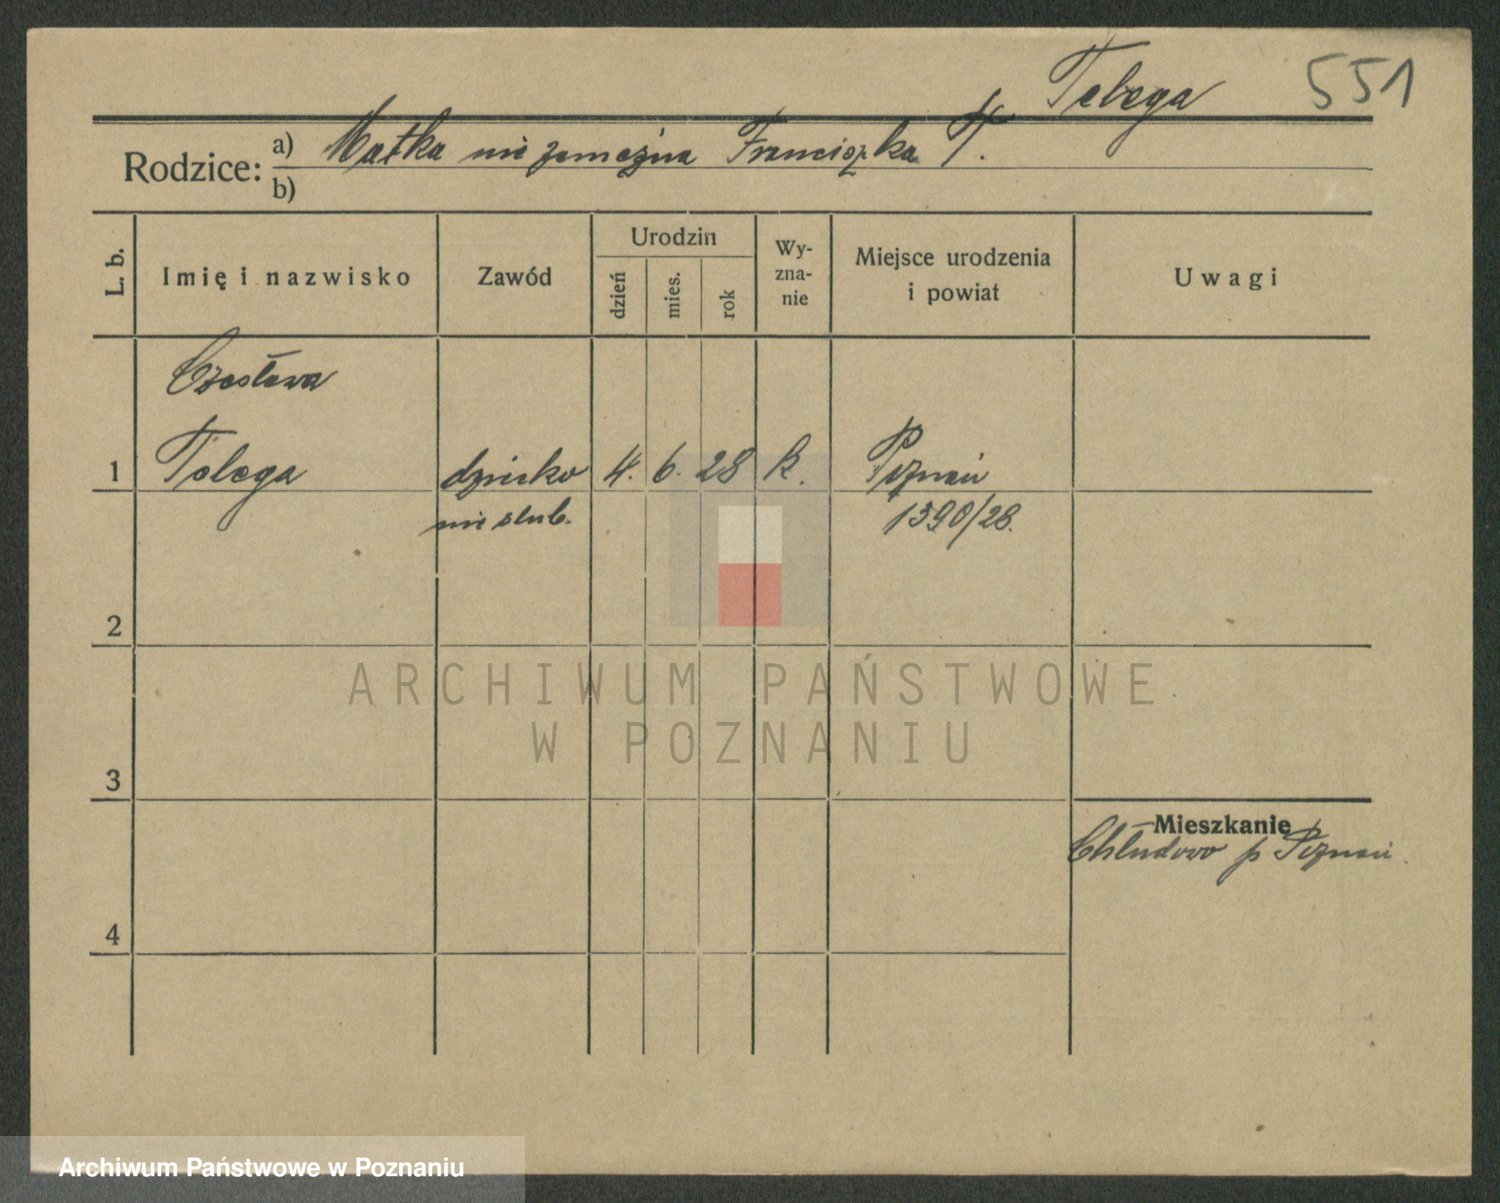 Telega 551
Rodzice: a) Matka nie zamężna Franciszka T.
b)
L. b. Imię i nazwisko Zawód Urodzin dzień mies. rok Wy-zna-nie Miejsce urodzenia i powiat Uwagi
Czesława
1 Telega dziecko 4. 6. 28 k. Poznań
nie ślub. 1390/28.
2
ARCHIWUM PAŃSTWOWE
W POZNANIU
3
Mieszkanie
Chludowo p Poznań.
4
Archiwum Państwowe w Poznaniu